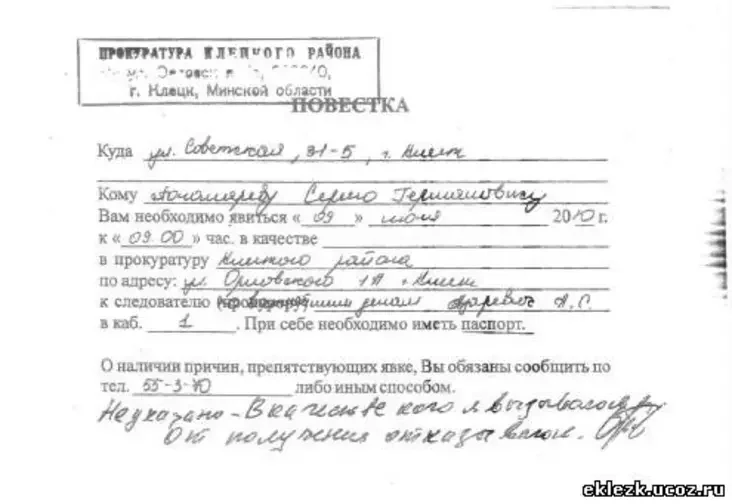 ПРОКУРАТУРА КЛЕЦКОГО РАЙОНА
г. Клецк, Минской области
ПОВЕСТКА
Куда ул. Советская, 31-5, г. Клецк
Кому Пономареву Сергею Германовичу
Вам необходимо явиться « 09 » июня 2010 г.
к « 09.00 » час. в качестве
в прокуратуру Клецкого района
по адресу: ул. Орловского 1А г. Клецк
к следователю А.С.
в каб. 1 . При себе необходимо иметь паспорт.
О наличии причин, препятствующих явке, Вы обязаны сообщить по
тел. 55-3-70 либо иным способом.
Не указано - В качестве кого я вызываюсь
От получения отказываюсь.
eklezk.ucoz.ru